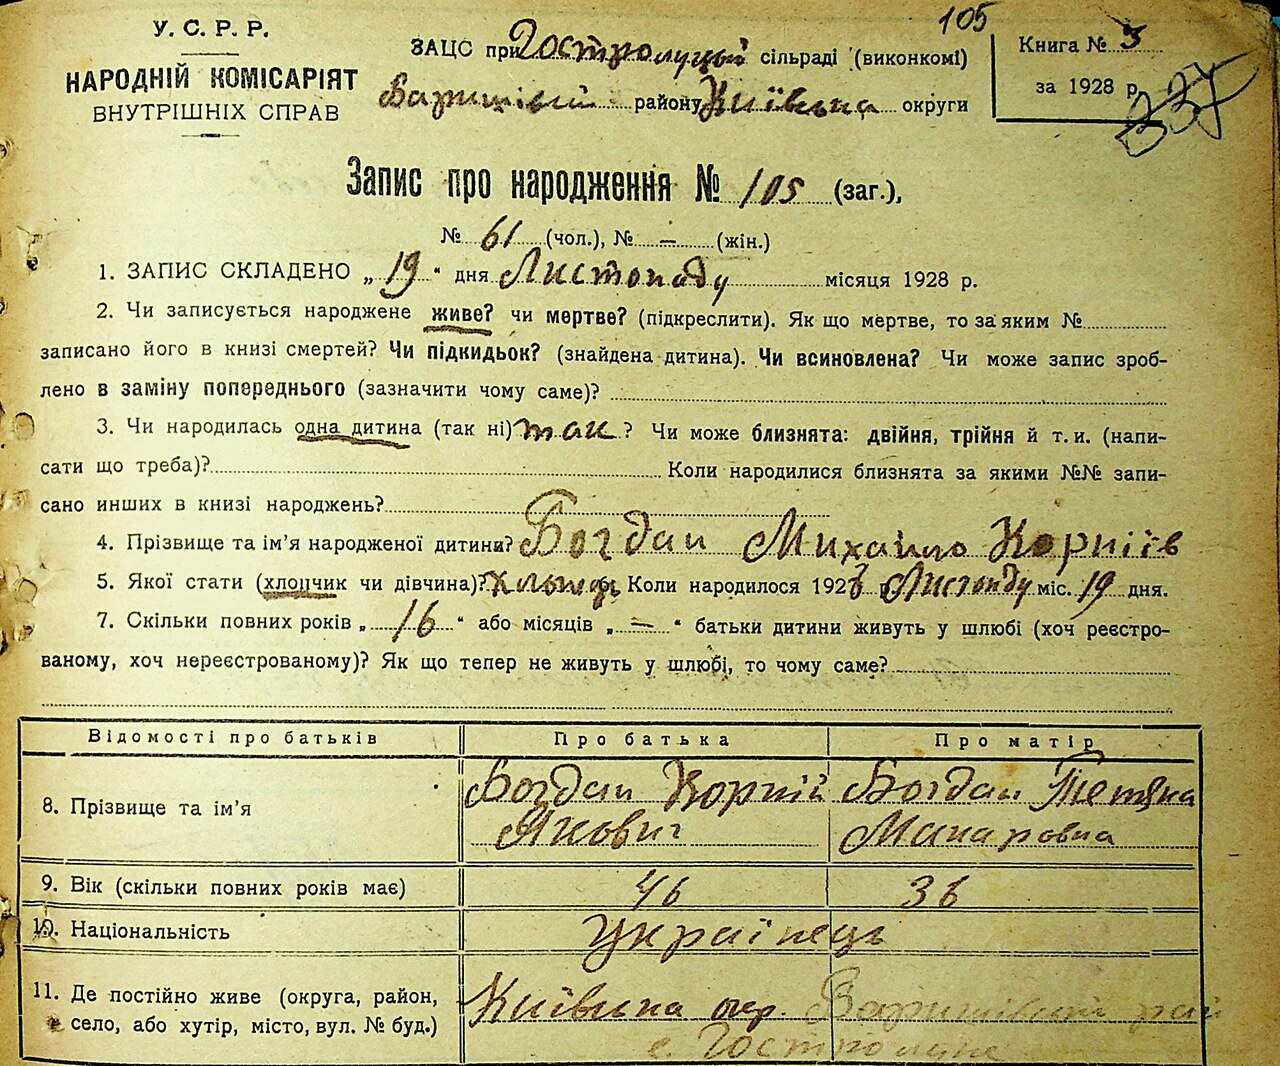 105
У. С. Р. Р.
НАРОДНІЙ КОМІСАРІЯТ
ВНУТРІШНІХ СПРАВ
ЗАЦС при Гостролуцый сільраді (виконкомі)
Баришівський району Київська округи
Книга № 3
за 1928 р.
337
Запис про народження № 105 (заг.),
№ 61 (чол.), № — (жін.)
1. ЗАПИС СКЛАДЕНО „ 19 " дня Листопаду місяця 1928 р.
2. Чи записується народжене живе? чи мертве? (підкреслити). Як що мертве, то за яким №
записано його в книзі смертей? Чи підкидьок? (знайдена дитина). Чи всиновлена? Чи може запис зроб-
лено в заміну попереднього (зазначити чому саме)?
3. Чи народилась одна дитина (так ні) так ? Чи може близнята: двійня, трійня й т. и. (напи-
сати що треба)? Коли народилися близнята за якими №№ запи-
сано инших в книзі народжень?
4. Прізвище та ім'я народженої дитини? Богдан Михайло Корніїв
5. Якої стати (хлопчик чи дівчина)? Коли народилося 1928 р. Листопаду міс. 19 дня.
7. Скільки повних років „ 16 " або місяців „ — " батьки дитини живуть у шлюбі (хоч реєстро-
ваному, хоч нереєстрованому)? Як що тепер не живуть у шлюбі, то чому саме?
Відомості про батьків
Про батька
Про матір
8. Прізвище та ім'я
Богдан Корній
Якович
Богдан Тетяна
Макаровна
9. Вік (скільки повних років має)
46
36
10. Національність
Українець
11. Де постійно живе (округа, район,
село, або хутір, місто, вул. № буд.)
Київська окр. Баришівський рай
с. Гостролуце